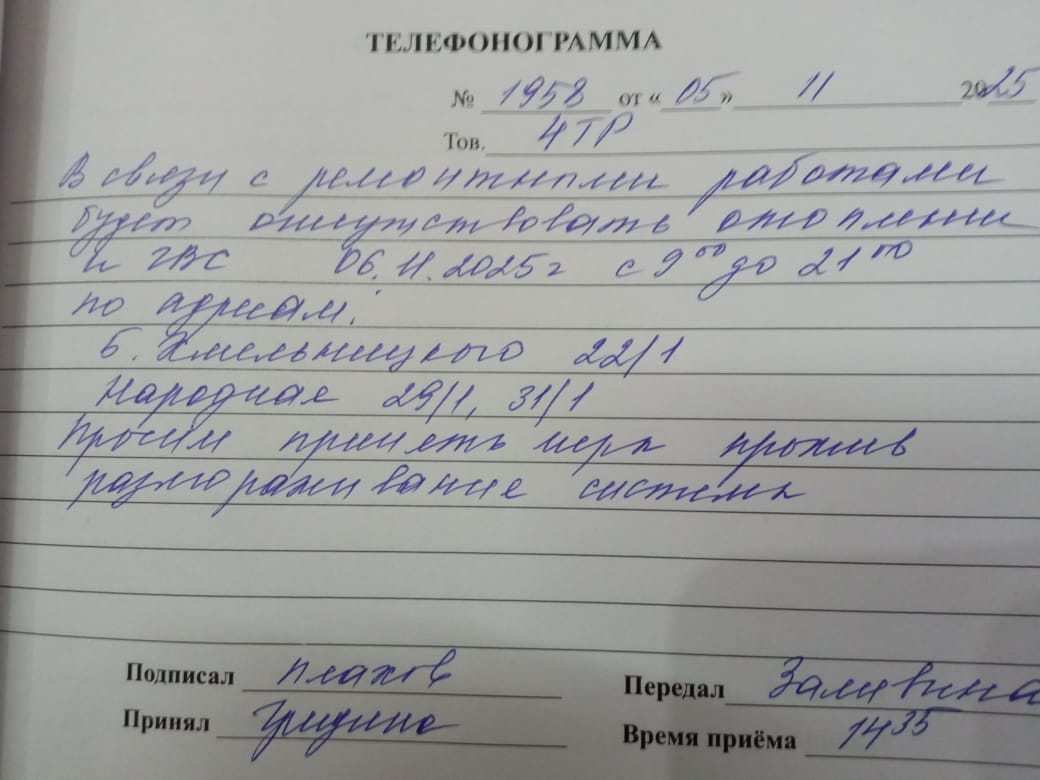 ТЕЛЕФОНОГРАММА
№ 1958 от «05» 11 2025
Тов. 4 ТР
В связи с ремонтными работами
будет отсутствовать отопление
и ГВС 06.11.2025г с 9⁰⁰ до 21⁰⁰
по адресам:
Б. Хмельницкого 22/1
Народная 29/1, 31/1
Просим принять меры против
размораживание системы
Подписал Плахов
Передал Заливина
Принял Гридина
Время приёма 14³⁵